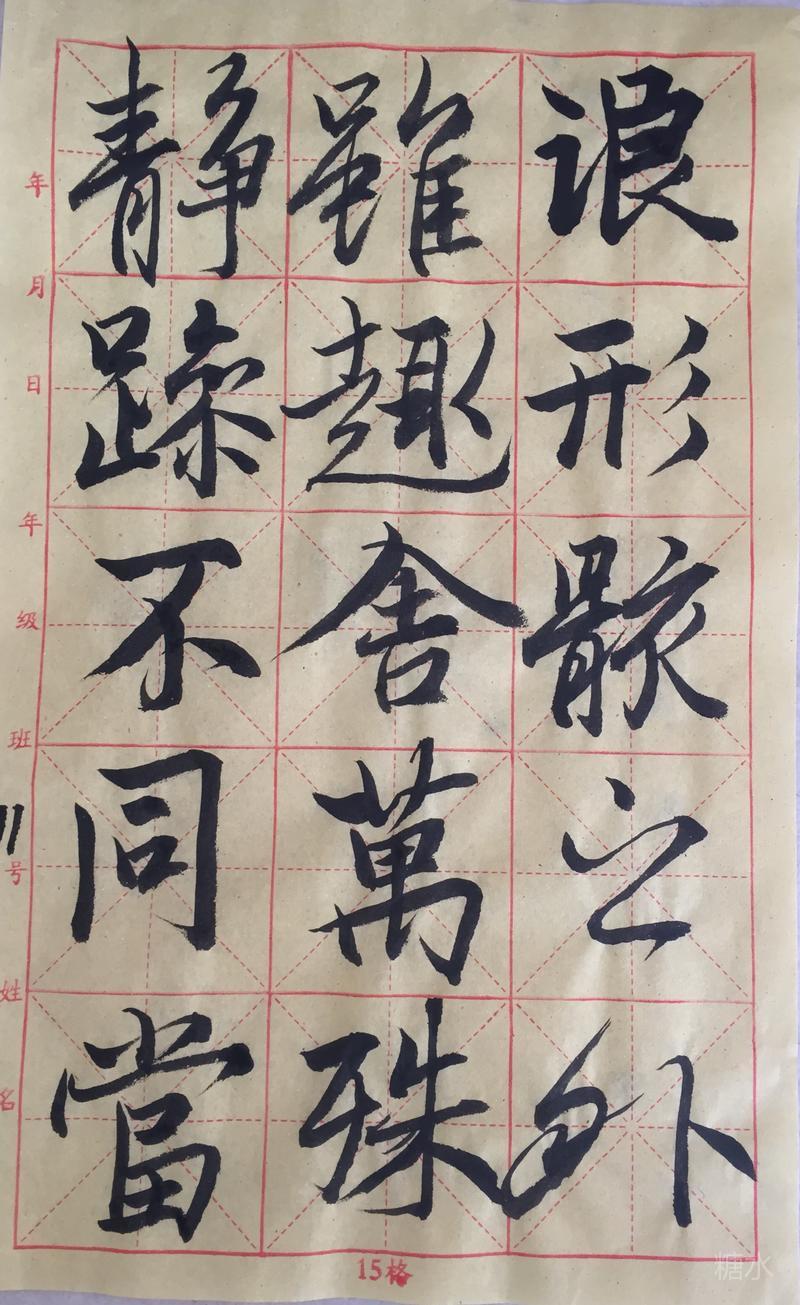 浪形骸之外
雖趣舍萬殊
静躁不同當
年
月
日
年
级
班
号
姓
名
15格
糖水